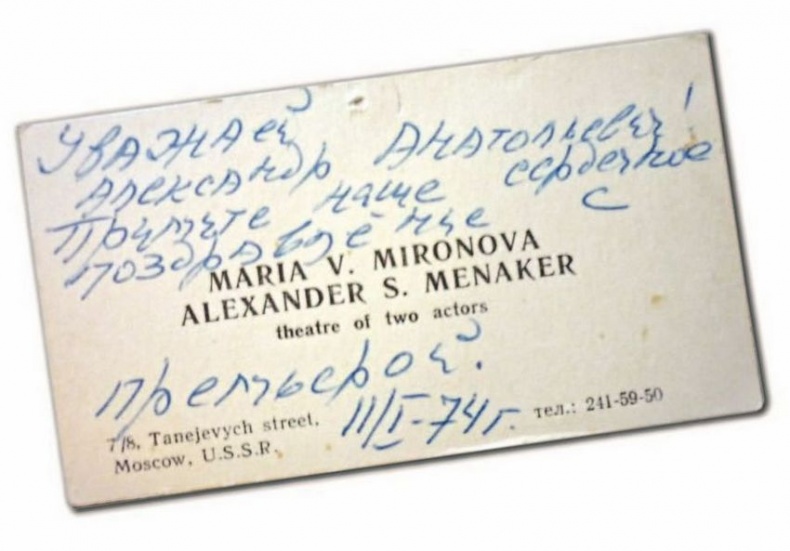 Уважаей
Александр Анатольевич!
Примите наше сердечное
поздравление с
MARIA V. MIRONOVA
ALEXANDER S. MENAKER
theatre of two actors
премьерой.
7/8, Tanejevych street,
Moscow, U.S.S.R.
11/I-74г.
тел.: 241-59-50